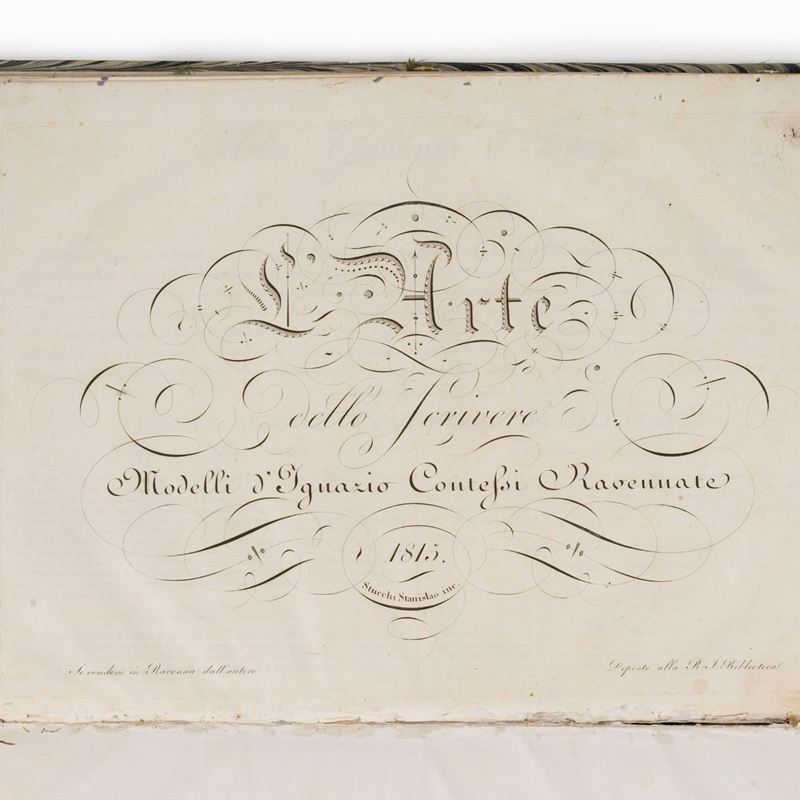 L'Arte
dello Scrivere
Modelli d'Ignazio Conteſsi Ravennate
1815.
Stucchi Stanislao inc.
Si vendono in Ravenna dall'autore
Deposto alla R. I. Biblioteca